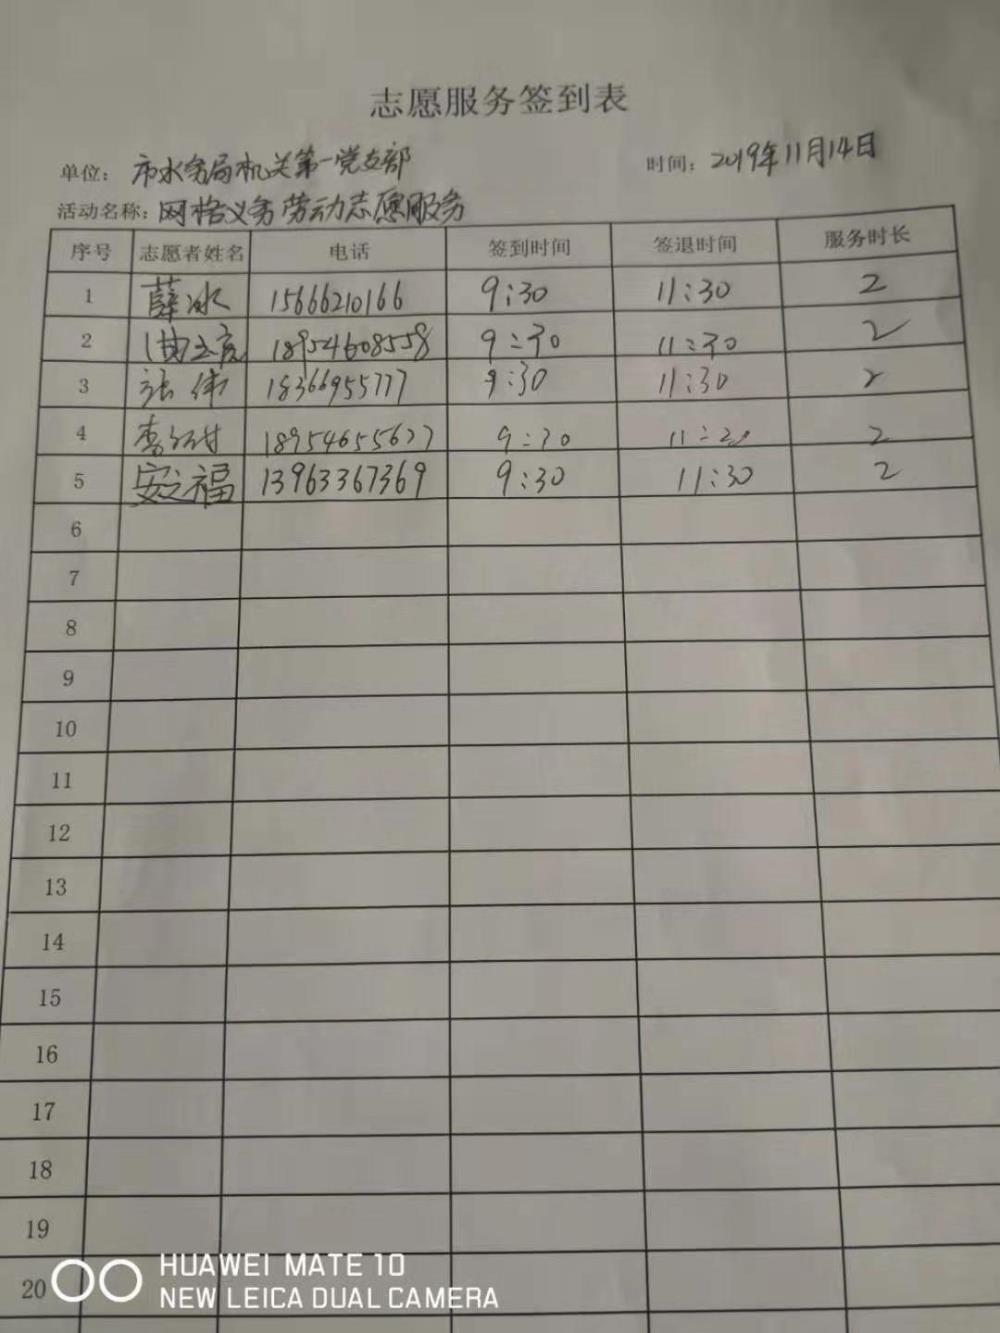 志愿服务签到表
单位: 市水务局机关第一党支部 时间: 2019年11月14日
活动名称: 网格义务劳动志愿服务
序号 志愿者姓名 电话 签到时间 签退时间 服务时长
1 薛冰 15666210166 9:30 11:30 2
2 18954608558 9:30 11:30 2
3 张伟 18366955777 9:30 11:30 2
4 李 18954655677 9:30 2
5 安立福 13963367369 9:30 11:30 2
6
7
8
9
10
11
12
13
14
15
16
17
18
19
20
HUAWEI MATE 10
NEW LEICA DUAL CAMERA